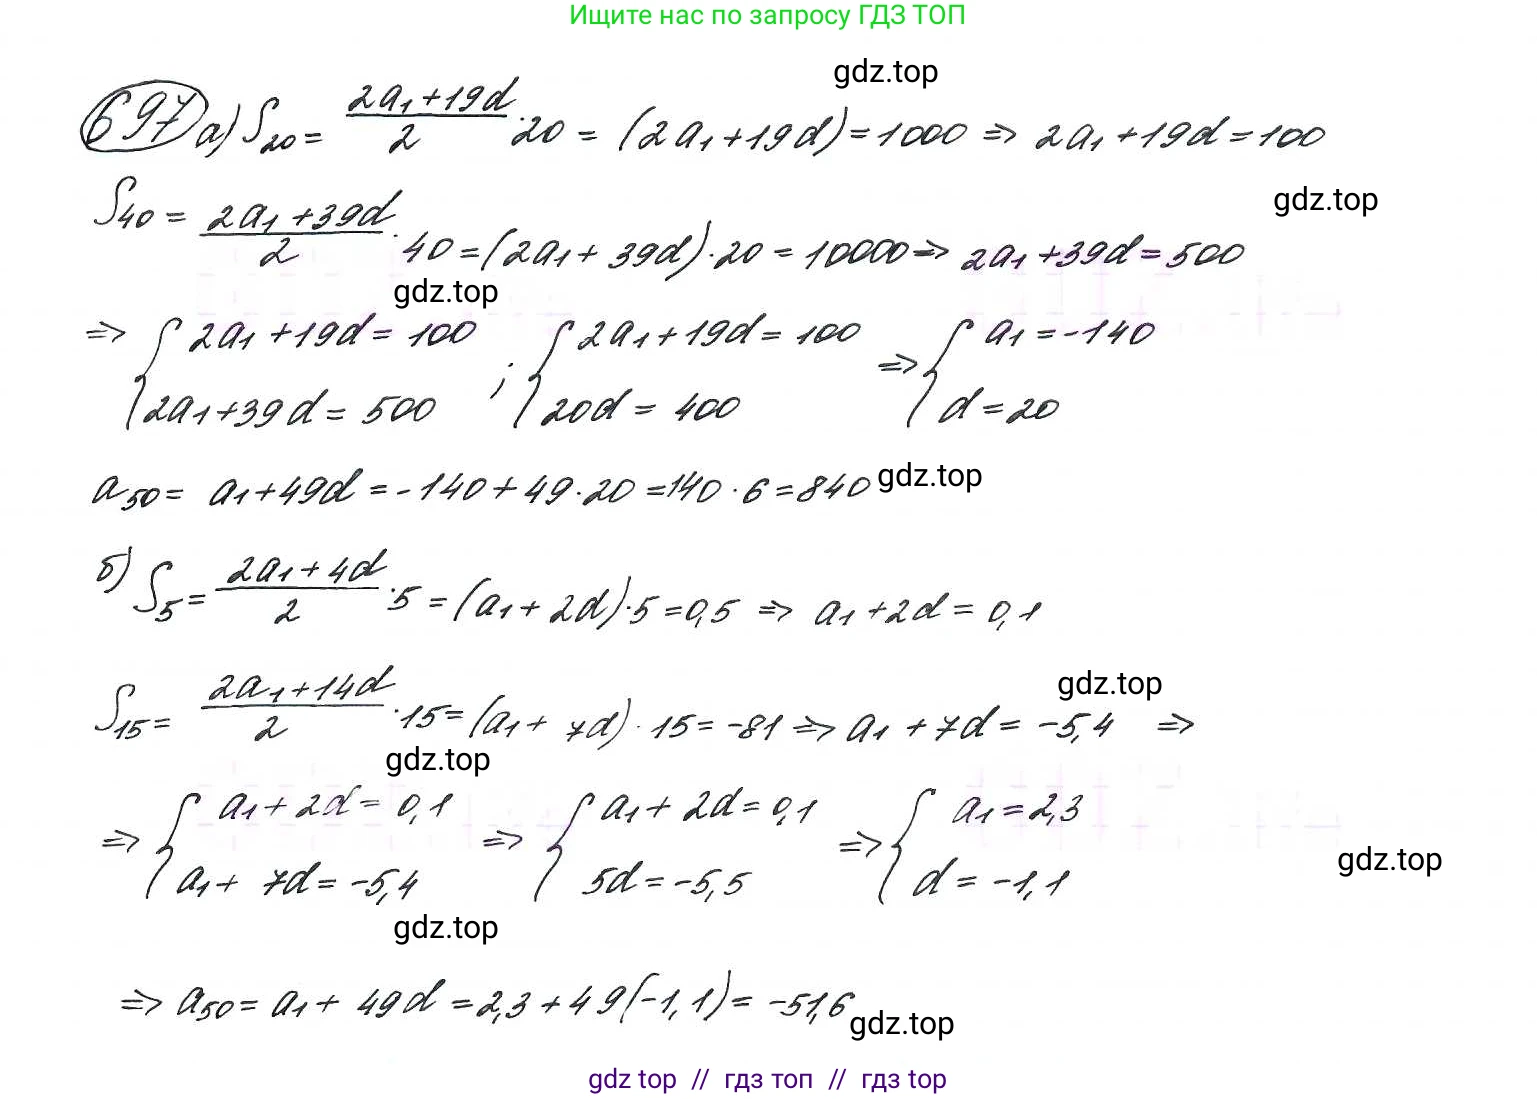 Ищите нас по запросу ГДЗ ТОП
gdz.top
697 а) S₂₀ = (2a₁+19d)/2 · 20 = (2a₁+19d) = 1000 ⇒ 2a₁+19d = 100
gdz.top
S₄₀ = (2a₁+39d)/2 · 40 = (2a₁+39d)·20 = 10000 ⇒ 2a₁+39d = 500
gdz.top
⇒ { 2a₁+19d = 100 ; { 2a₁+19d = 100 ⇒ { a₁ = -140
2a₁+39d = 500 20d = 400 d = 20
a₅₀ = a₁+49d = -140+49·20 = 140·6 = 840 gdz.top
б) S₅ = (2a₁+4d)/2 · 5 = (a₁+2d)·5 = 0,5 ⇒ a₁+2d = 0,1
gdz.top
S₁₅ = (2a₁+14d)/2 · 15 = (a₁+7d)·15 = -81 ⇒ a₁+7d = -5,4 ⇒
gdz.top
⇒ { a₁+2d = 0,1 ⇒ { a₁+2d = 0,1 ⇒ { a₁ = 2,3
gdz.top
a₁+7d = -5,4 5d = -5,5 d = -1,1
gdz.top
⇒ a₅₀ = a₁+49d = 2,3+49(-1,1) = -51,6
gdz.top
gdz top // гдз топ // гдз top